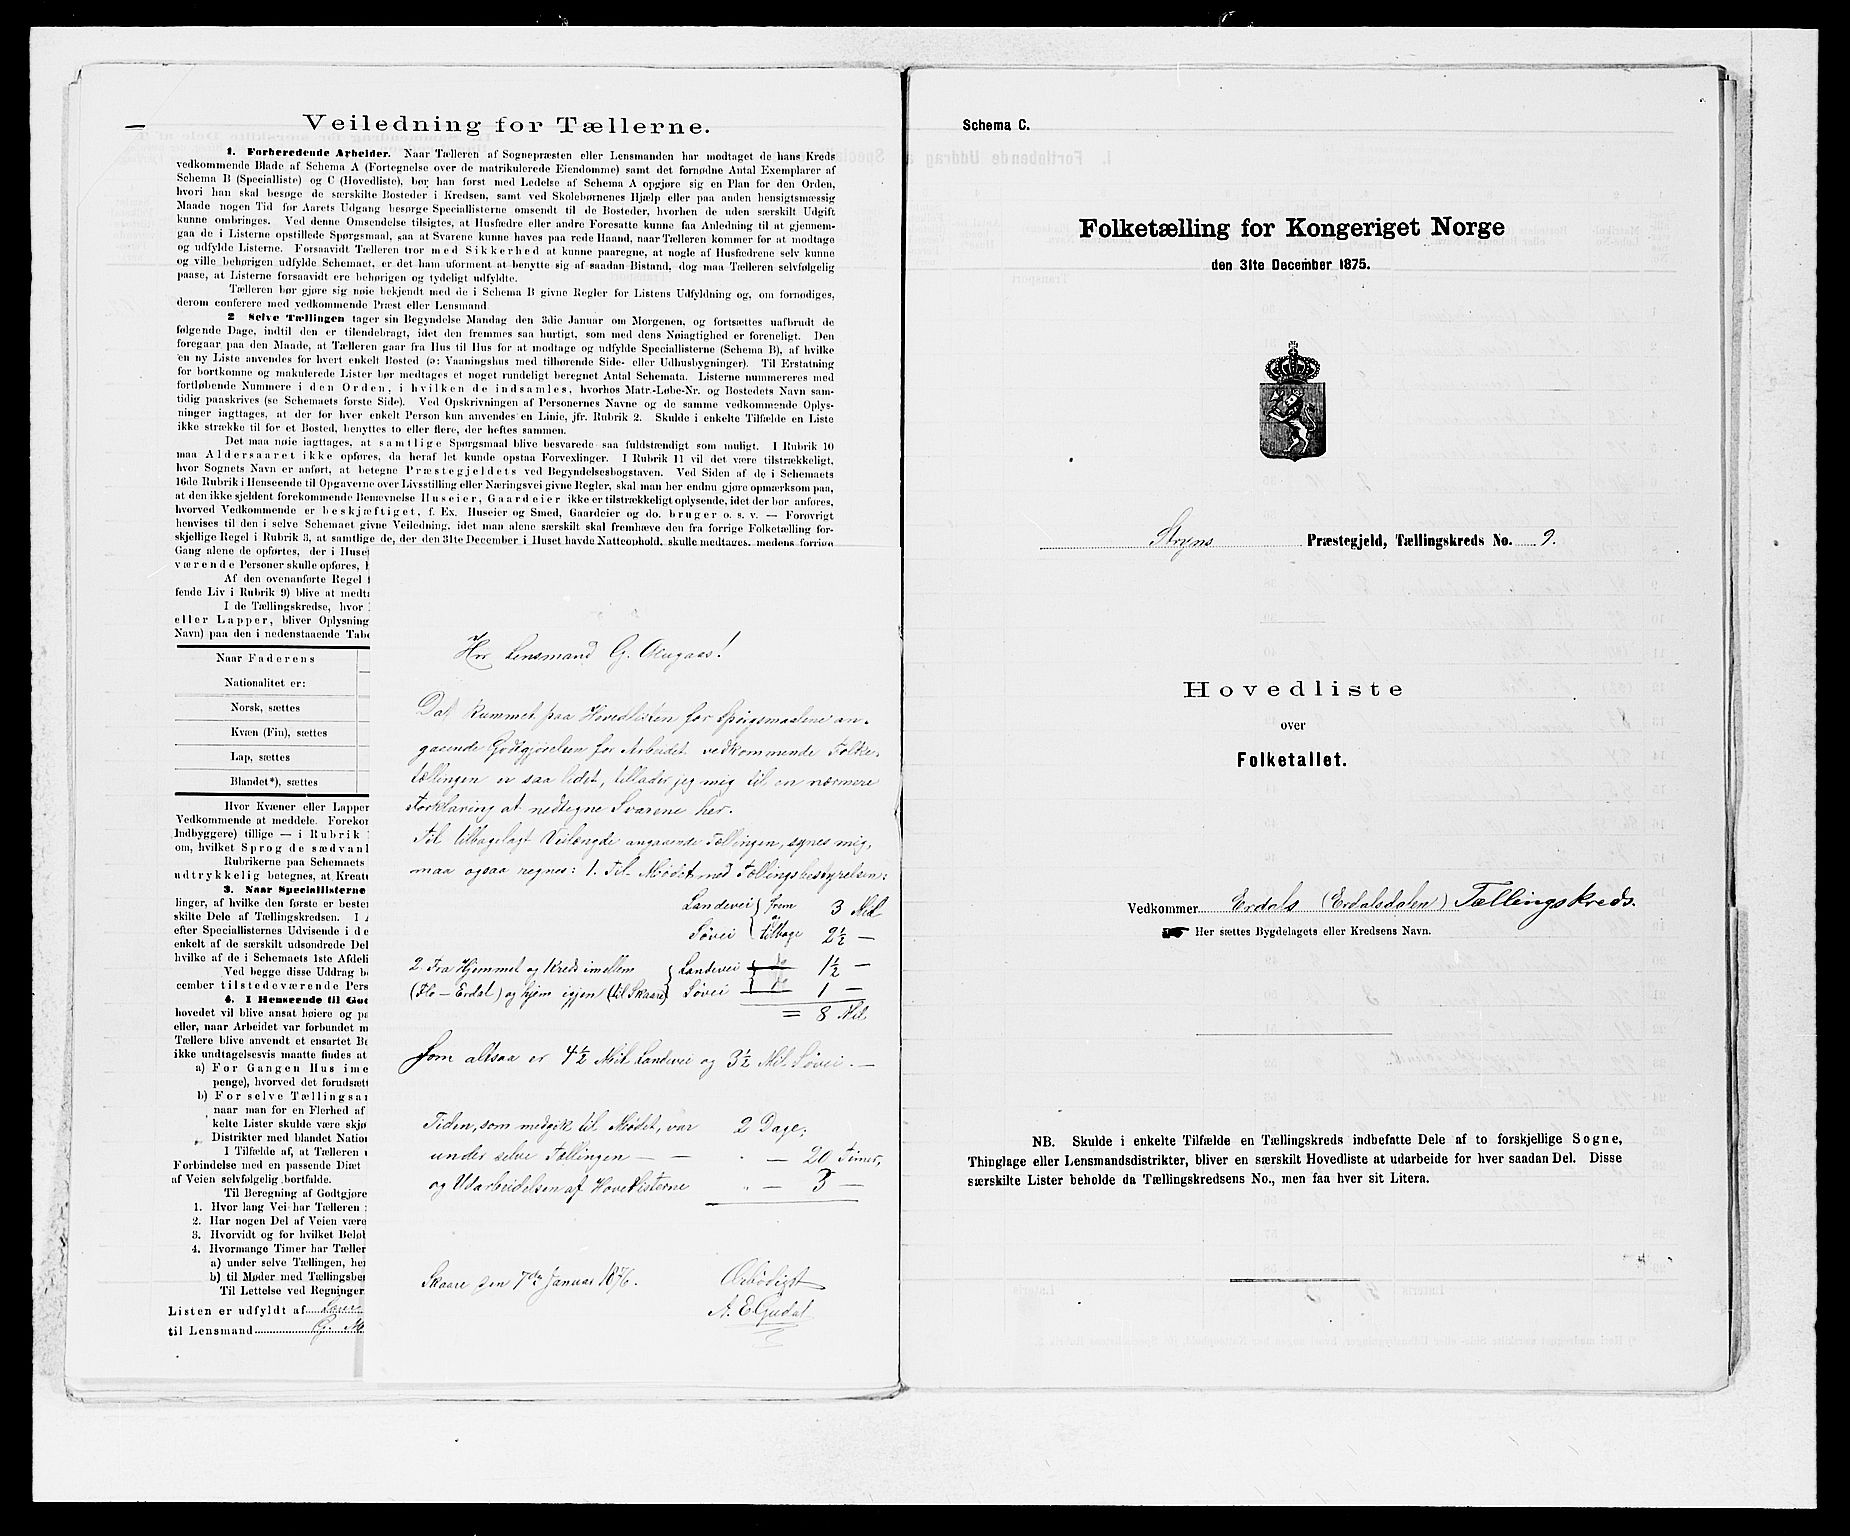 Veiledning for Tællerne.
1. Forberedende Arbeider. Naar Tælleren af Sognepræsten eller Lensmanden har modtaget de hans Kreds
vedkommende Blade af Schema A (Fortegnelse over de matrikulerede Eiendomme) samt det fornødne Antal Exemplarer af
Schema B (Specialliste) og C (Hovedliste), bør han først med Ledelse af Schema A opgjøre sig en Plan for den Orden,
hvori han skal besøge de særskilte Bosteder i Kredsen, samt ved Skolebørnenes Hjælp eller paa anden hensigtsmæssig
Maade nogen Tid før Aarets Udgang besørge Speciallisterne omsendt til de Bosteder, hvorhen de uden særskilt Udgift
kunne ombringes. Ved denne Omsendelse tilsigtes, at Husfædre eller andre Foresatte kunne faa Anledning til at gjennem-
gaa de i Listerne opstillede Spørgsmaal, saa at Svarene kunne haves paa rede Haand, naar Tælleren kommer for at modtage
og udfylde Listerne. Forsaavidt Tælleren tror med Sikkerhed at kunne paaregne, at nogle af Husfædrene selv kunne
og ville behørigen udfylde Schemaet, er det ham uforment at benytte sig af saadan Bistand, dog maa Tælleren selvfølgelig
paase, at Listerne forsaavidt ere behørigen og tydeligt udfyldte.
Tælleren bør gjøre sig nøie bekjendt med de i Schema B givne Regler for Listens Udfyldning og, om fornødiges,
derom conferere med vedkommende Præst eller Lensmand.
2 Selve Tællingen tager sin Begyndelse Mandag den 3die Januar om Morgenen, og fortsættes uafbrudt de
følgende Dage, indtil den er tilendebragt, idet den fremmes saa hurtigt, som med dens Nøiagtighed er foreneligt. Den
foregaar paa den Maade, at Tælleren gaar fra Hus til Hus for at modtage og udfylde Speciallisterne (Schema B), af hvilke
en ny Liste anvendes for hvert enkelt Bosted (ɔ: Vaaningshus med tilhørende Side- eller Udhusbygninger). Til Erstatning
for bortkomne og makulerede Lister bør medtages et noget rundeligt beregnet Antal Schemata. Listerne nummereres med
fortløbende Nummere i den Orden, i hvilken de indsamles, hvorhos Matr.-Løbe-Nr. og Bostedets Navn sam-
tidig paaskrives (se Schemaets første Side). Ved Opskrivningen af Personernes Navne og de samme vedkommende Oplys-
ninger iagttages, at der for hver enkelt Person kun anvendes en Linie, jfr. Rubrik 2. Skulde i enkelte Tilfælde en Liste
ikke strække til for et Bosted, benyttes to eller flere, der heftes sammen.
Det maa nøie iagttages, at samtlige Spørgsmaal blive besvarede saa fuldstændigt som muligt. I Rubrik 10
maa Aldersaaret ikke opføres, da heraf let kunde opstaa Forvexlinger. I Rubrik 11 vil det være tilstrækkeligt,
hvor Sognets Navn er anført, at betegne Præstegjeldets ved Begyndelsesbogstaven. Ved Siden af de i Schemaets
16de Rubrik i Henseende til Opgaverne over Livsstilling eller Næringsvei givne Regler, skal man her endnu gjøre opmærksom paa,
at den ikke sjeldent forekommende Benævnelse Huseier, Gaardeier ikke er tilstrækkeligt oplysende, idet der bør anføres,
hvorved Vedkommende er beskjæftiget, f. Ex. Huseier og Smed, Gaardeier og do. bruger o. s. v. — Forøvrigt
henvises til den i selve Schemaet givne Veiledning, idet man alene særskilt skal fremhæve den fra forrige Folketælling for-
skjellige Regel i Rubrik 3, at samtlige de, der den 31te December i Huset havde Natteophold, skulle medtages, medens forrige
Gang alene de opførtes, der i Huset
værende Personer skulle opføres,
Af den ovenanførte Regel
fende Liv i Rubrik 9) blive at medt
I de Tællingskredse, hvor
eller Lapper, bliver Oplysning
Navn) paa den i nedenstaaende Tabe
Naar Faderens
Nationalitet er:
Norsk, sættes
Kvæn (Fin), sættes
Lap, sættes
Blandet*), sættes
Hvor Kvæner eller Lapper
Vedkommende at meddele. Forekom
Indbyggere) tillige — i Rubrik
om, hvilket Sprog de sædvanl
Rubrikerne paa Schemaets
udtrykkelig betegnes, at Kreatu
3. Naar Speciallisterne
linger, af hvilke den første er bestem
skilte Dele af Tællingskredsen. I
efter Speciallisternes Udvisende i de
enkelt af de særskilt udsondrede Del
hvilke af de i Schemaets 1ste Afdeli
Ved begge disse Uddrag be
cember tilstedeværende Pers
4. I Henseende til God
hovedet vil blive ansat høiere og pa
eller, naar Arbeidet var forbundet m
Tællere blive anvendt et ensartet Be
ikke undtagelsesvis maatte findes at
a) For Gangen Hus ime
penge), hvorved det forudsætt
b) For selve Tællingsar
naar man for en Flerhed af
kelte Lister skulde være skjø
Distrikter med blandet Nation
I Tilfælde af, at Tælleren
Forbindelse med en passende Diæt
af Veien selvfølgelig bortfalde.
Til Beregning af Godtgjøre
1. Hvor lang Vei har Tælleren
2. Har nogen Del af Veien være
3. Hvorvidt og for hvilket Beløb
4. Hvormange Timer har Tæller
a) under selve Tællingen, her
b) til Møder med Tællingsbe
Til Lettelse ved Regninger
Listen er udfyldt af
til Lensmand G.
Hrr Lensmand G.
Da Rummet paa Hovedlisten for Spørgsmaalene an-
gaaende Godtgjørelsen for Arbeidet vedkommende Folke-
tællingen er saa lidet, tillader jeg mig til en nærmere
Forklaring at nedtegne Svarene her.
Til tilbagelagt Veilængde angaaende Tællingen, synes mig,
maa ogsaa regnes: 1. Til Mødet med Tællingsbestyrelsen:
Landevei frem 3 Mil
Søvei og tilbage 2½ —
2. Fra Hjemmet og Kreds imellem Landevei do 1½ —
(Flo – Erdal) og hjem igjen (til Skaare) Søvei do 1 —
= 8 Mil
Som altsaa er 4½ Mil Landevei og 3½ Mil Søvei. —
Tiden, som medgik til Mødet, var 2 Dage;
under selve Tællingen — — " — 20 Timer,
og Udarbeidelsen af Hovedlisterne " — 3 —
Skaare den 7de Januar 1876.
Ærbødigst
A. E Gudal
Schema C.
Folketælling for Kongeriget Norge
den 31te December 1875.
Stryns Præstegjeld, Tællingskreds No. 9.
Hovedliste
over
Folketallet.
Vedkommer Erdals (Erdalsdalen) Tællingskreds.
Her sættes Bygdelagets eller Kredsens Navn.
NB. Skulde i enkelte Tilfælde en Tællingskreds indbefatte Dele af to forskjellige Sogne,
Thinglage eller Lensmandsdistrikter, bliver en særskilt Hovedliste at udarbeide for hver saadan Del. Disse
særskilte Lister beholde da Tællingskredsens No., men faa hver sit Litera.